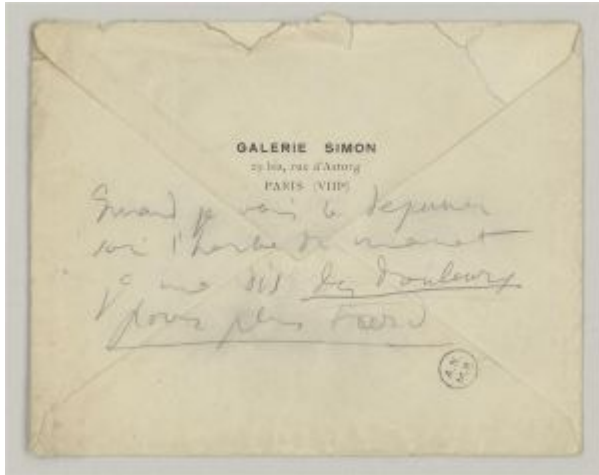 GALERIE SIMON
29 bis, rue d'Astorg
PARIS (VIIIᵉ)
Quand je vois le dejeuner
sur l'herbe de manet
je me dis des douleurs
pour plus tard